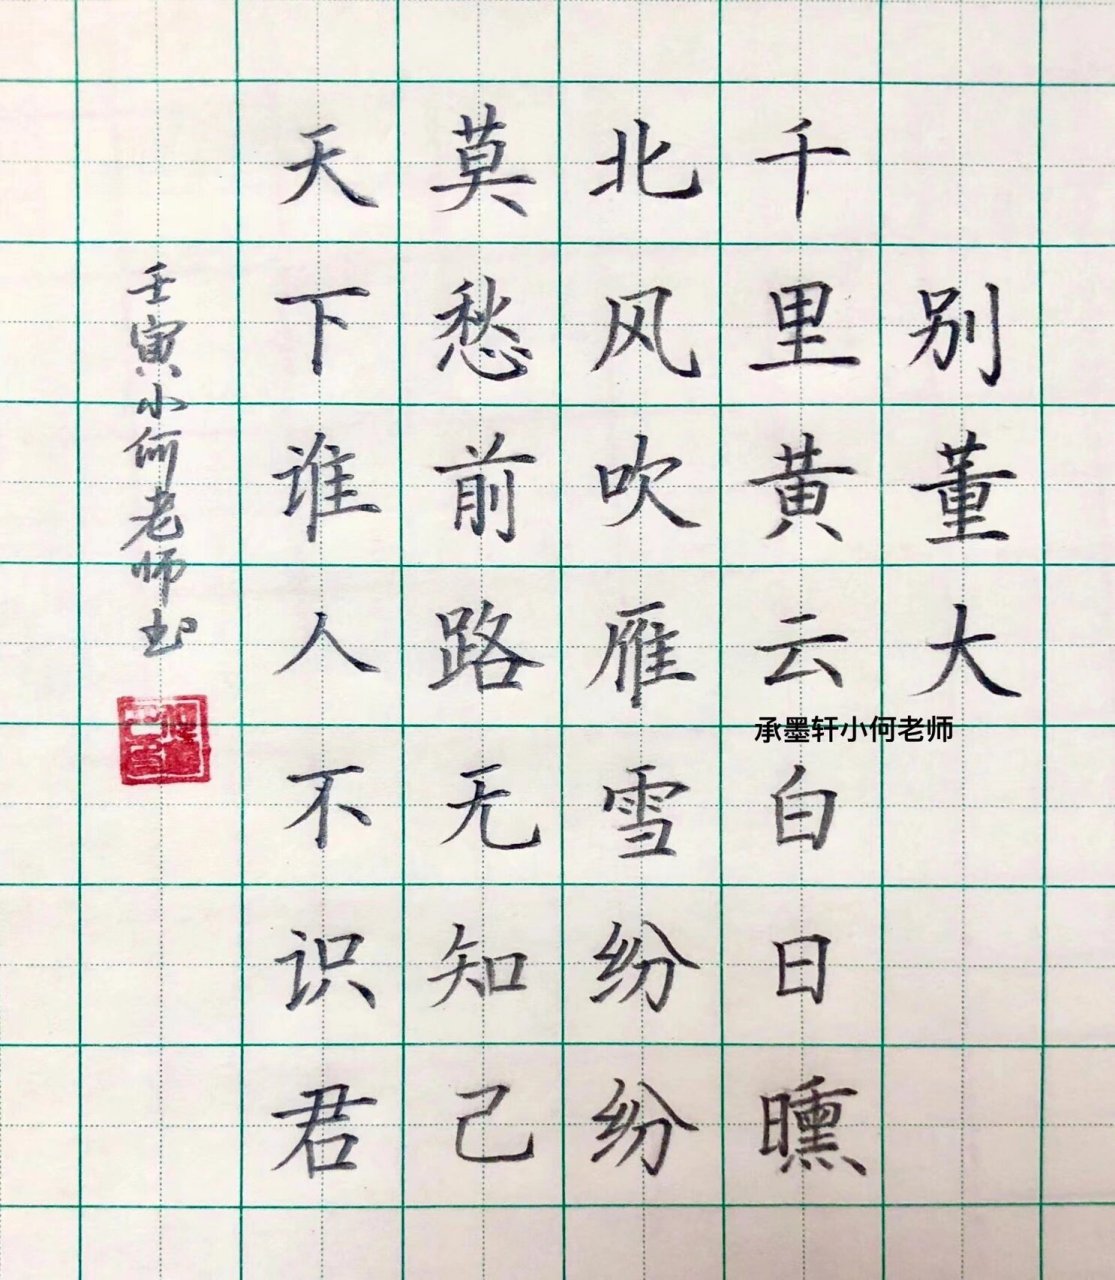 别董大
千里黄云白日曛
北风吹雁雪纷纷
莫愁前路无知己
天下谁人不识君
壬寅小何老师书
承墨轩小何老师